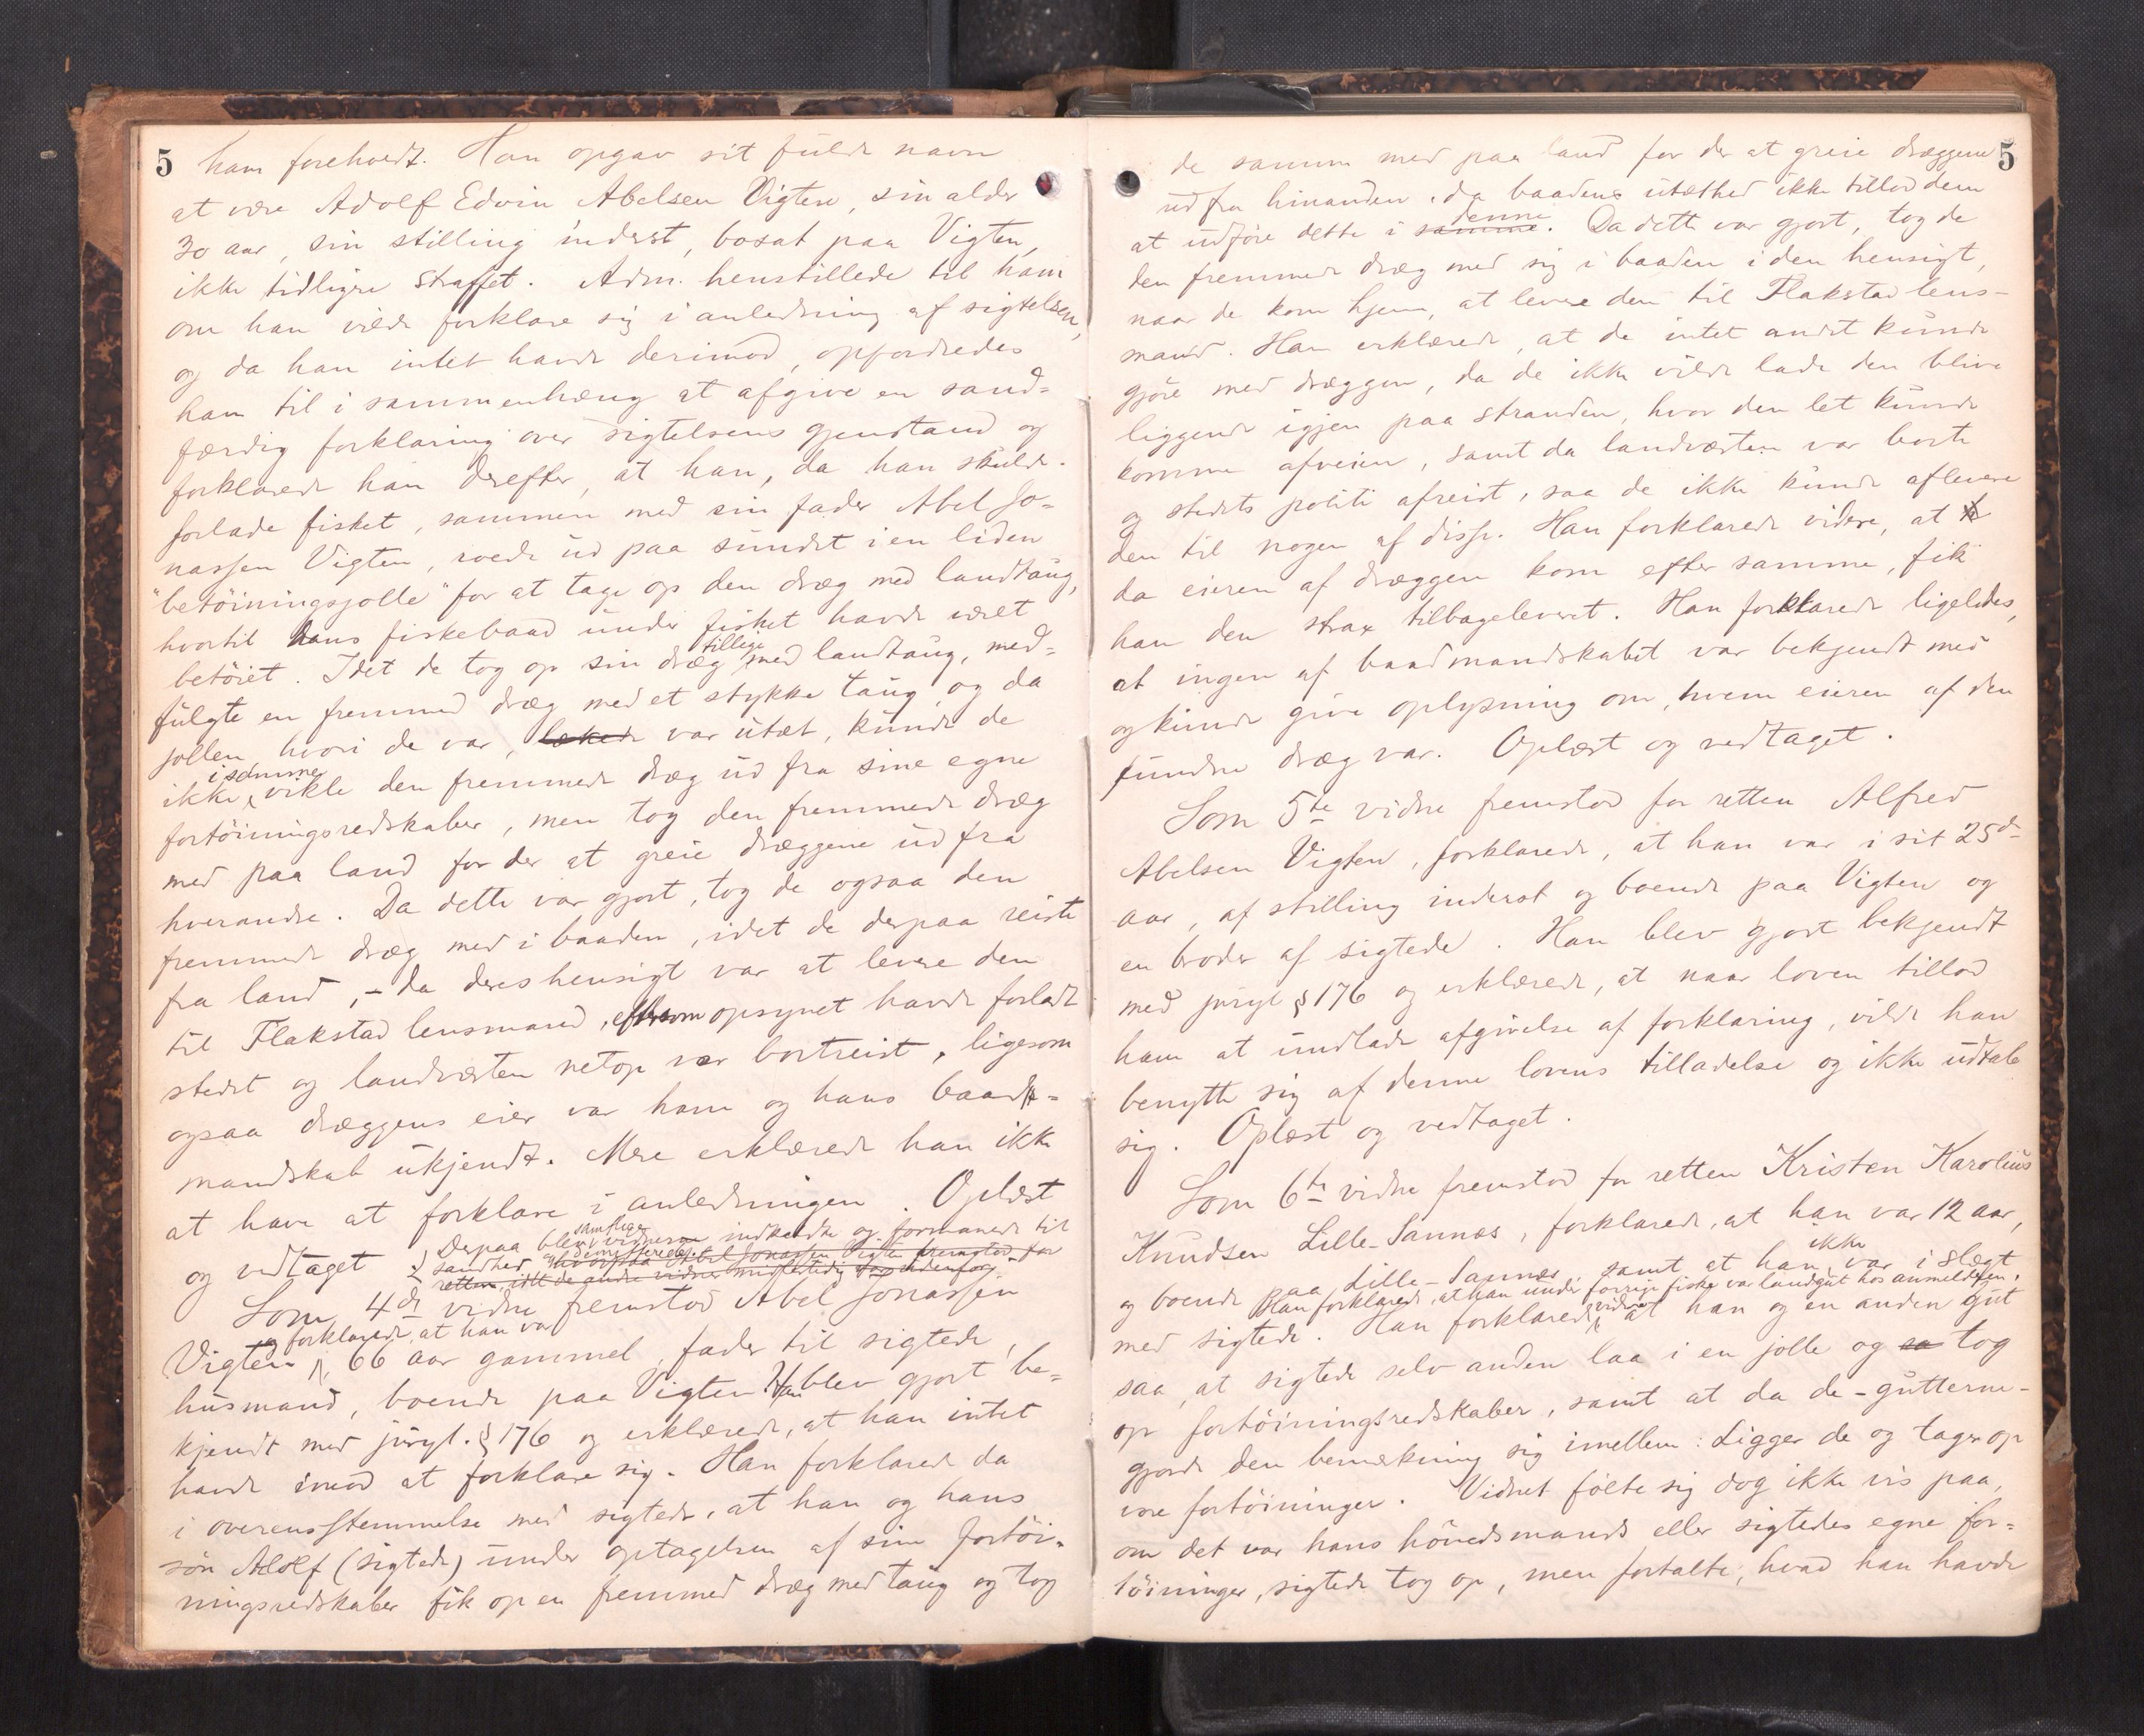 5
ham foreholdt. Han opgav sit fulde navn
at være Adolf Edvin Abelsen Vigten, sin alder
30 aar, sin stilling inderst, bosat paa Vigten,
ikke tidligere straffet. Adm. henstillede til ham
om han vilde forklare sig i anledning af sigtelsen,
og da han intet havde derimod, opfordredes
han til i sammenhæng at afgive en sand=
færdig forklaring over sigtelsens gjenstand og
forklarede han derefter, at han, da han skulde
forlade fisket, sammen med sin fader Abel Jo=
nassen Vigten, roede ud paa sundet i en liden
"betöiningsjolle" for at tage op den dræg med landtaug,
hvortil hans fiskebaad under fisket havde været
betöiet. Idet de tog op sin dræg tillige med landtaug, med=
fulgte en fremmed dræg med et stykke taug, og da
jollen, hvori de var, lækede var utæt, kunde de
ikke i samme vikle den fremmede dræg ud fra sine egne
fortöiningsredskaber, men tog den fremmede dræg
med paa land for der at greie dræggene ud fra
hverandre. Da dette var gjort, tog de ogsaa den
fremmede dræg med i baaden, idet de derpaa reiste
fra land, - da deres hensigt var at levere den
til Flakstad lensmand, eftersom opsynet havde forladt
stedet og landværten netop var bortreist, ligesom
ogsaa dræggens eier var ham og hans baad=
mandskab ukjendt. Mere erklærede han ikke
at have at forklare i anledningen. Oplæst
og vedtaget
Derpaa blev samtlige vidnerne indkaldte og formanede til
sandhed og hvorpaa Abel Jonassen Vigten fremstod for
retten, idet de andre vidner midlertidig udenfor
Som 4de vidne fremstod Abel Jonassen
Vigten og forklarede, at han var 66 aar gammel, fader til sigtede,
husmand, boende paa Vigten. Han blev gjort be=
kjendt med juryl. § 176 og erklærede, at han intet
havde imod at forklare sig. Han forklarede da
i overensstemmelse med sigtede, at han og hans
sön Adolf (sigtede) under optagelsen af sine fortöi=
ningsredskaber fik op en fremmed dræg med taug og tog
5
de samme med paa land for der at greie dræggene
ud fra hinanden, da baadens utæthed ikke tillod dem
at udföre dette i samme denne. Da dette var gjort, tog de
den fremmede dræg med sig i baaden i den hensigt,
naar de kom hjem, at levere den til Flakstad lens=
mand. Han erklærede, at de intet andet kunde
gjöre med dræggen, da de ikke vilde lade den blive
liggende igjen paa stranden, hvor den let kunde
komme afveien, samt da landværten var borte
og stedets politi afreist, saa de ikke kunde aflevere
den til nogen af disse. Han forklarede videre, at
da eieren af dræggen kom efter samme, fik
han den strax tilbageleveret. Han forklarede ligeledes,
at ingen af baadmandskabet var bekjendt med
og kunde give oplysning om, hvem eieren af den
fundne dræg var. Oplæst og vedtaget.
Som 5te vidne fremstod for retten Alfred
Abelsen Vigten, forklarede, at han var i sit 25de
aar, af stilling inderst og boende paa Vigten og
en broder af sigtede. Han blev gjort bekjendt
med juryl § 176 og erklærede, at naar loven tillod
ham at undlade afgivelse af forklaring, vilde han
benytte sig af denne lovens tilladelse og ikke udtale
sig. Oplæst og vedtaget.
Som 6te vidne fremstod for retten Kristen Karolius
Knudsen Lille-Sannæs, forklarede, at han var 12 aar,
og boende paa Lille-Sannæs samt at han ikke var i slægt
med sigtede. Han forklarede, at han under forrige fiske var landgut hos anmelderen. Han forklarede videre at han og en anden gut
saa, at sigtede selv anden laa i en jolle og sa tog
op fortöiningsredskaber, samt at da de - gutterne -
gjorde den bemærkning sig imellem: Ligger de og tager op
vore fortöininger. Vidnet fölte sig dog ikke vis paa,
om det var hans hövedsmands eller sigtedes egne for=
töininger, sigtede tog op, men fortalte, hvad han havde